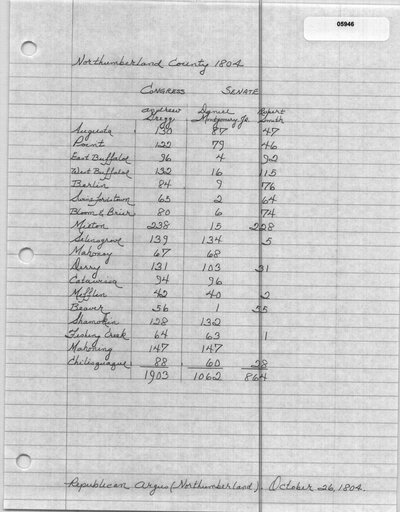 05946
Northumberland County 1804
CONGRESS SENATE
Andrew Daniel Robert
Gregg Montgomery Jr. Smith
Augusta 130 87 47
Point 122 79 46
East Buffaloe 96 4 92
West Buffaloe 132 16 115
Berlin 84 9 76
65 2 64
Bloom & Briar 80 6 74
238 15 228
Selinsgrove 139 134 5
Mahonoy 67 68
Derry 131 103 31
Catawissa 94 96
Mifflin 42 40 2
Beaver 56 1 55
Shamokin 128 132
Fishing Creek 64 63 1
Mahoning 147 147
Chilisquaque 88 60 28
1903 1062 864
Republican Argus (Northumberland). October 26, 1804.